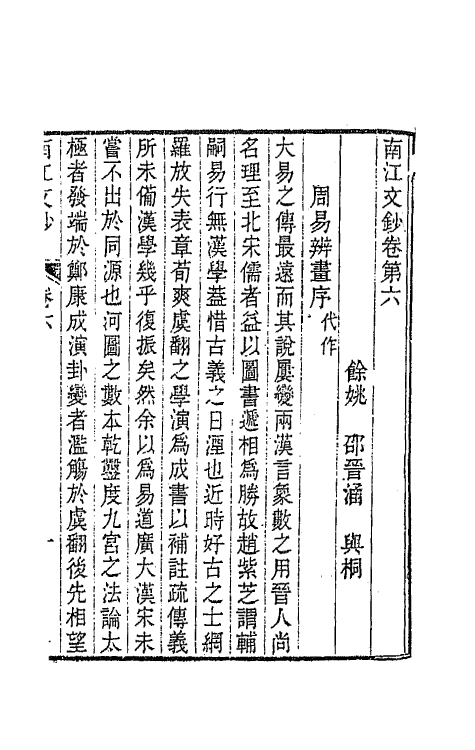 南江文鈔卷第六
餘姚 邵晉涵 與桐
周易辨畫序代作
大易之傳最遠而其說屢變兩漢言象數之用晉人尚
名理至北宋儒者益以圖書遞相爲勝故趙紫芝謂輔
嗣易行無漢學蓋惜古義之日湮也近時好古之士網
羅放失表章荀爽虞翻之學演爲成書以補註疏傳義
所未備漢學幾乎復振矣然余以爲易道廣大漢宋未
嘗不出於同源也河圖之數本乾鑿度九宮之法論太
極者發端於鄭康成演卦變者濫觴於虞翻後先相望
南江文鈔 卷六 一